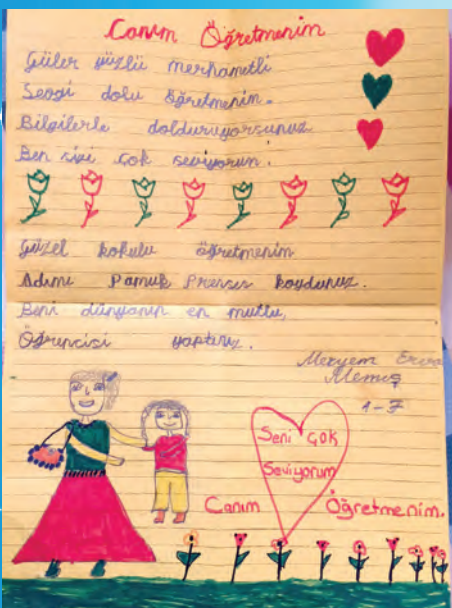 Canım Öğretmenim
Güler yüzlü merhametli
Sevgi dolu öğretmenim.
Bilgilerle dolduruyorsunuz
Ben sizi çok seviyorum.
Güzel kokulu öğretmenim
Adımı Pamuk Prenses koydunuz.
Beni dünyanın en mutlu,
Öğrencisi yaptınız.
Meryem
Memiş
1-F
Seni çok
Seviyorum
Canım Öğretmenim.